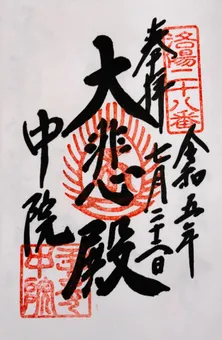 洛陽二十八番
奉拝
令和五年
七月二十三日
大悲殿
中院
壬生
中院